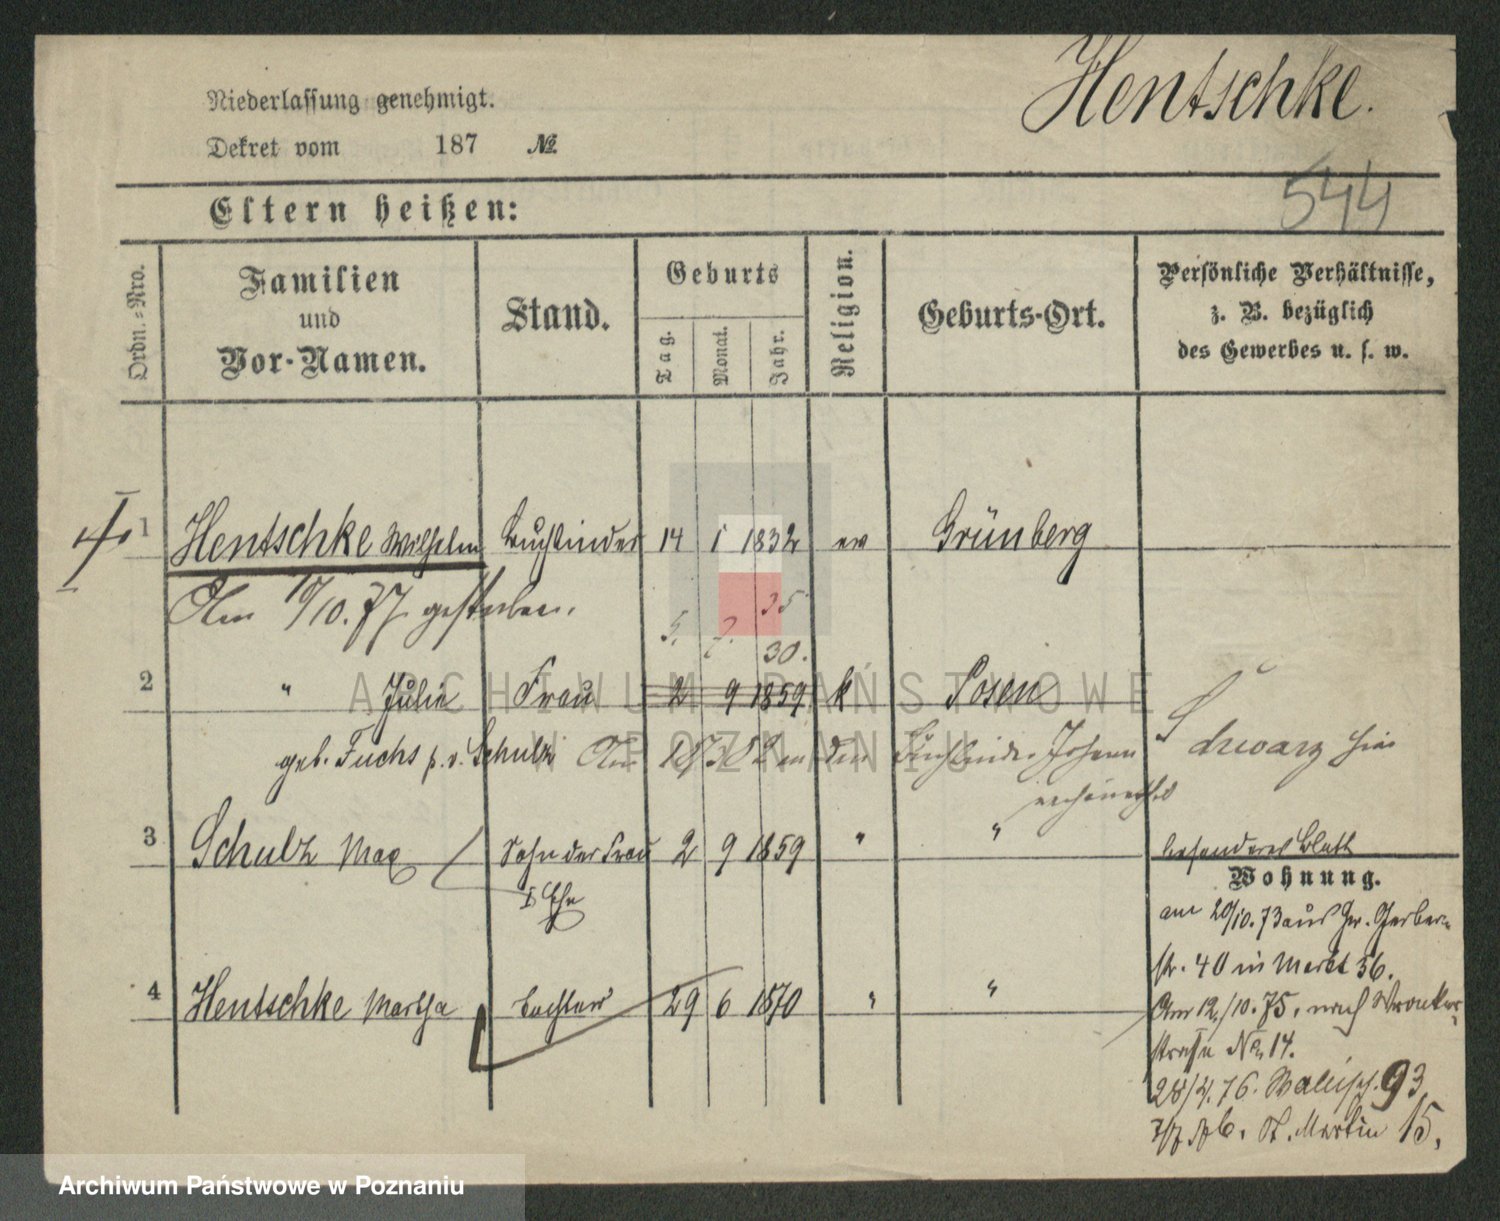 Hentschke.
Niederlassung genehmigt.
Dekret vom 187 №
544
Eltern heißen:
Ordn.-Nro.
Familien
und
Vor-Namen.
Stand.
Geburts
Tag.
Monat.
Jahr.
Religion.
Geburts-Ort.
Persönliche Verhältnisse,
z. B. bezüglich
des Gewerbes u. s. w.
1 Hentschke Wilhelm Buchbinder 14 1 1832 ev Grünberg
Am 19/10. 77 gestorben.
35
5. 7. 30.
2 " Julie Frau 2 9 1859 k Posen
geb. Fuchs p. v. Schulz Am 18/3 82 an den Buchbinder Johann Schwarz hier
verheirathet
3 Schulz Max Sohn der Frau 2 9 1859 " "
I Ehe
besonderes Blatt
4 Hentschke Martha Tochter 29 6 1870 " "
Wohnung.
am 20/10. 73 aus Gr. Gerber-
str. 40 in Markt 56.
Am 12./10. 75. nach Wronker-
straße No. 14.
28/4. 76. Wallisch. 93
St. Martin 15.
ARCHIWUM PAŃSTWOWE
W POZNANIU
Archiwum Państwowe w Poznaniu